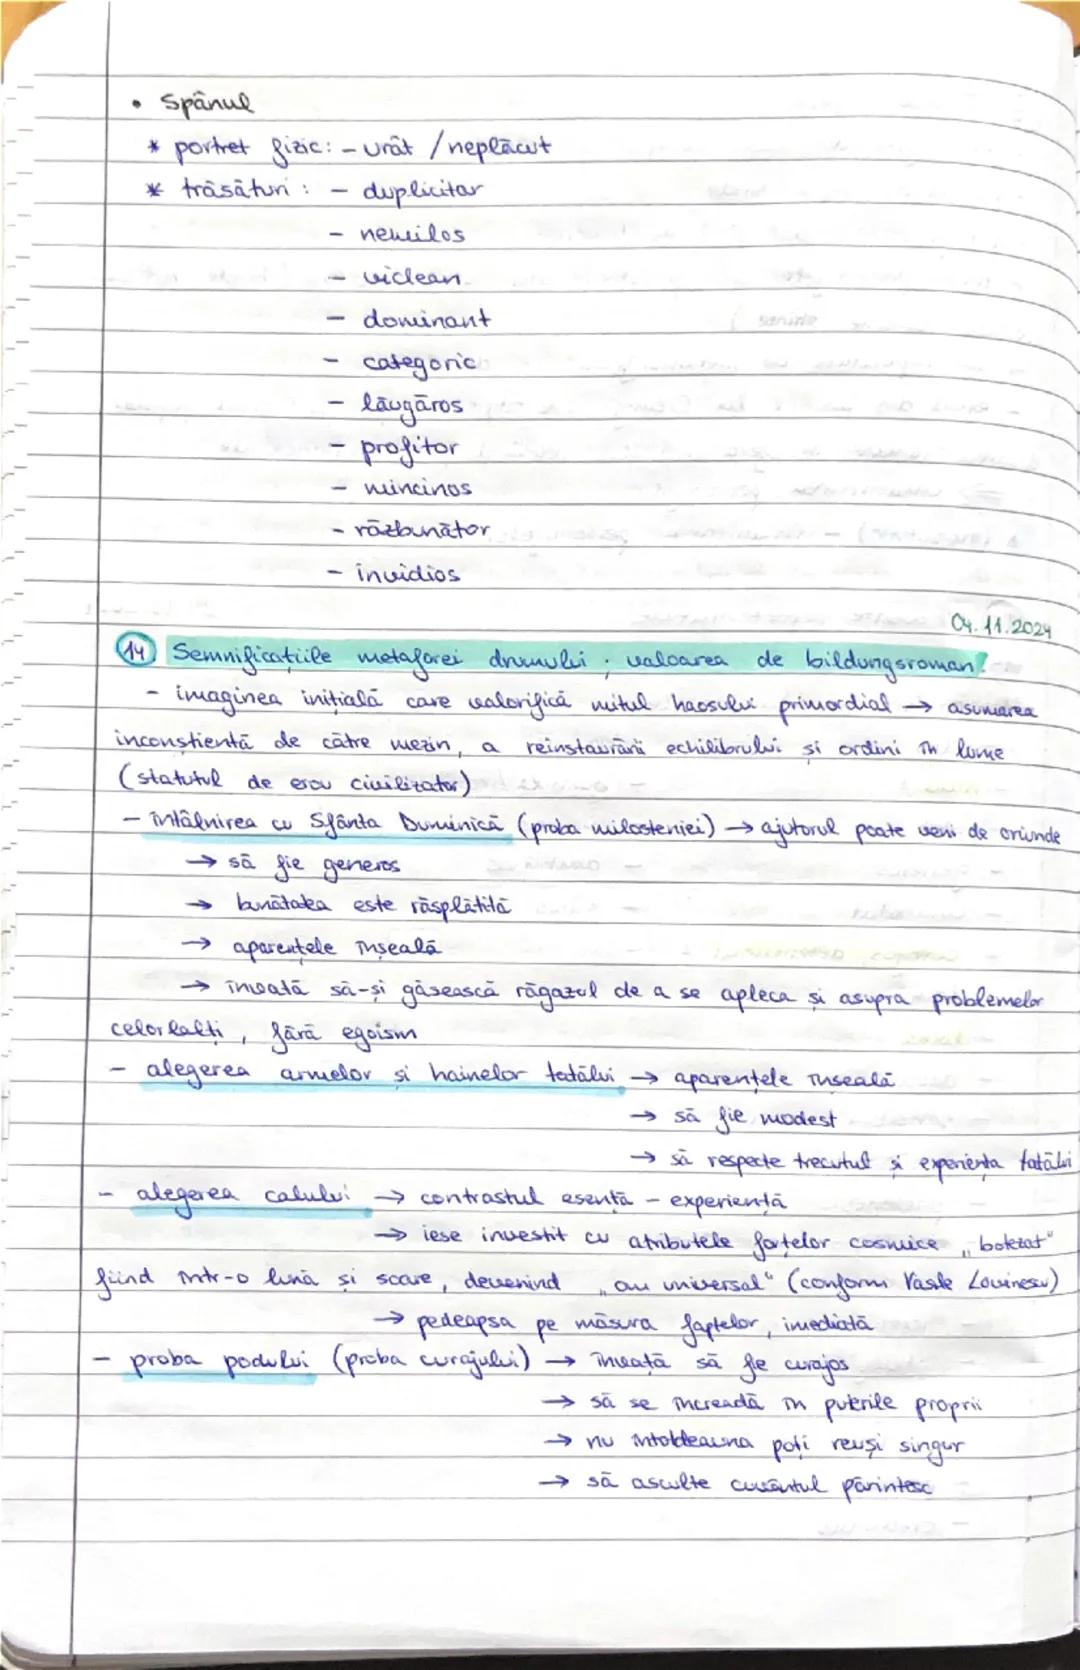 • Spânul
* portret fizic: - urât / neplăcut
* trăsături: - duplicitar
- nemilos
- viclean
- dominant
- categoric
- lăugăros
- profitor
- mincinos
- răzbunător
- invidios
04.11.2024
14 Semnificațiile metaforei drumului; valoarea de bildungsroman!
- imaginea inițială care valorifică mitul haosului primordial → asumarea
inconștientă de către mezin, a reinstaurării echilibrului și ordini în lume
(statutul de erou civilizator)
- întâlnirea cu Sfânta Duminică (proba milosteniei) → ajutorul poate veni de oriunde
→ să fie generos
→ bunătatea este răsplătită
→ aparențele înșeală
→ învață să-și găsească răgazul de a se apleca și asupra problemelor
celorlalți, fără egoism
- alegerea armelor și hainelor tatălui → aparențele înșeală
→ să fie modest
→ să respecte trecutul și experiența tatălui
- alegerea calului → contrastul esență - experiență
→ iese investit cu atributele forțelor cosmice „botezat"
fiind într-o lună și soare, devenind „om universal" (conform Vasile Lovinescu)
→ pedeapsa pe măsura faptelor, imediată
- proba podului (proba curajului) → învață să fie curajos
→ să se încreadă în puterile proprii
→ nu întotdeauna poți reuși singur
→ să asculte cuvântul părintesc